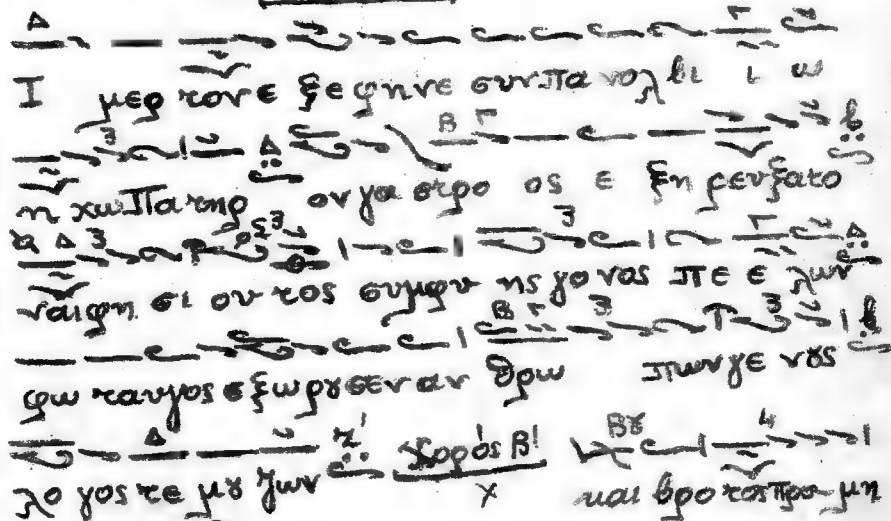 Ι μερ τον ε ξε φη νε συν πα νολ βι ι ω
η χω Πα τηρ ον γα στρο ος ε ξη ρευξατο
ναι φη σι ου τος συμφυ ης γο νος πε ε λων
φω ταυγος εξωρȣσεν αν θρω πων γε νȣς
λο γος τε μȣ ζων Χορός Β! και βρο τος προ μη